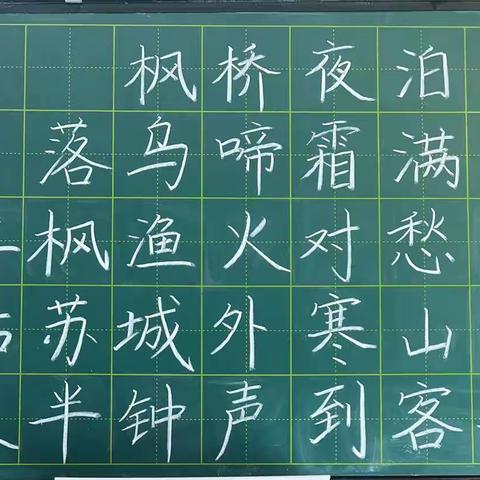 枫桥夜泊
落乌啼霜满
枫渔火对愁
苏城外寒山
半钟声到客